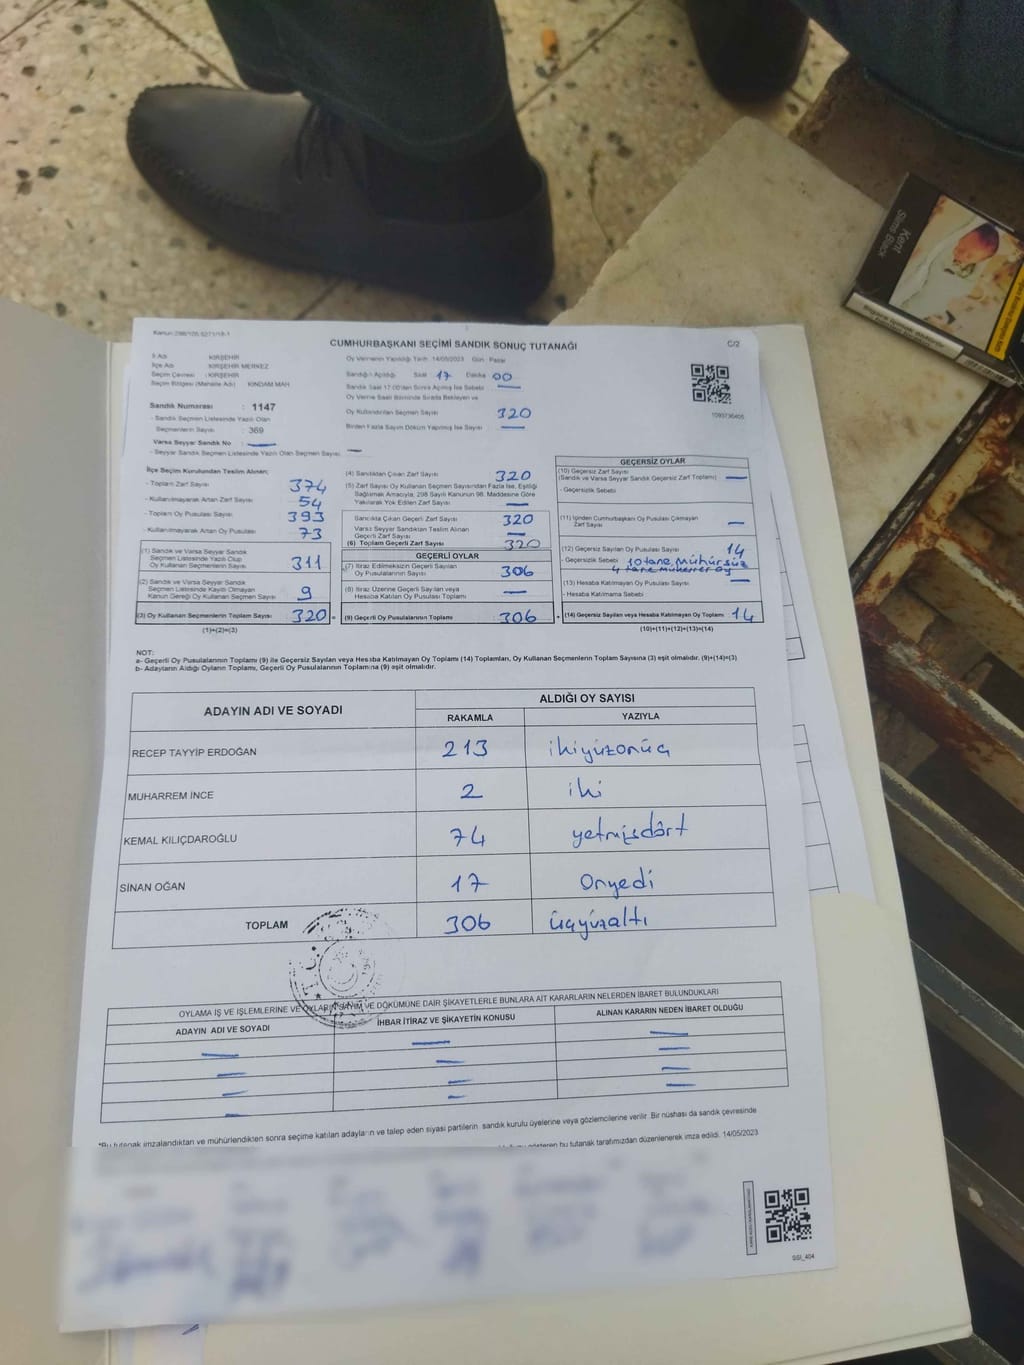 CUMHURBAŞKANI SEÇİMİ SANDIK SONUÇ TUTANAĞI
C/2
İl Adı : KIRŞEHİR
İlçe Adı : KIRŞEHİR MERKEZ
Seçim Çevresi : KIRŞEHİR
Seçim Bölgesi (Mahalle Adı) KINDAM MAH
Oy Vermenin Yapıldığı Tarih :14/05/2023 Gün : Pazar
Sandığın Açıldığı Saat : 17 Dakika : 00
Sandık Saat 17.00'den Sonra Açılmış İse Sebebi : —
Oy Verme Saati Bitiminde Sırada Bekleyen ve
Oy Kullandırılan Seçmen Sayısı 320
Birden Fazla Sayım Döküm Yapılmış İse Sayısı : —
1093736405
Sandık Numarası : 1147
- Sandık Seçmen Listesinde Yazılı Olan
Seçmenlerin Sayısı : 369
Varsa Seyyar Sandık No : —
- Seyyar Sandık Seçmen Listesinde Yazılı Olan Seçmen Sayısı : —
İlçe Seçim Kurulundan Teslim Alınan;
- Toplam Zarf Sayısı 374
- Kullanılmayarak Artan Zarf Sayısı 54
- Toplam Oy Pusulası Sayısı 393
- Kullanılmayarak Artan Oy Pusulası 73
(1) Sandık ve Varsa Seyyar Sandık
Seçmen Listesinde Yazılı Olup
Oy Kullanan Seçmenlerin Sayısı 311
(2) Sandık ve Varsa Seyyar Sandık
Seçmen Listesinde Kayıtlı Olmayan
Kanun Gereği Oy Kullanan Seçmen Sayısı 9
(3) Oy Kullanan Seçmenlerin Toplam Sayısı 320 =
(1)+(2)=(3)
(4) Sandıktan Çıkan Zarf Sayısı 320
(5) Zarf Sayısı Oy Kullanan Seçmen Sayısından Fazla İse, Eşitliği
Sağlamak Amacıyla, 298 Sayılı Kanunun 98. Maddesine Göre
Yakılarak Yok Edilen Zarf Sayısı —
Sandıkta Çıkan Geçerli Zarf Sayısı 320
Varsa Seyyar Sandıktan Teslim Alınan
Geçerli Zarf Sayısı —
(6) Toplam Geçerli Zarf Sayısı 320
GEÇERLİ OYLAR
(7) İtiraz Edilmeksizin Geçerli Sayılan
Oy Pusulalarının Sayısı 306
(8) İtiraz Üzerine Geçerli Sayılan veya
Hesaba Katılan Oy Pusulası Toplamı —
(9) Geçerli Oy Pusulalarının Toplamı : 306 +
GEÇERSİZ OYLAR
(10) Geçersiz Zarf Sayısı
(Sandık ve Varsa Seyyar Sandık Geçersiz Zarf Toplamı) —
- Geçersizlik Sebebi
(11) İçinden Cumhurbaşkanı Oy Pusulası Çıkmayan
Zarf Sayısı —
(12) Geçersiz Sayılan Oy Pusulası Sayısı 14
- Geçersizlik Sebebi 10 tane Mühürsüz
4 tane mükerrer oy
(13) Hesaba Katılmayan Oy Pusulası Sayısı —
- Hesaba Katılmama Sebebi
(14) Geçersiz Sayılan veya Hesaba Katılmayan Oy Toplamı : 14
(10)+(11)+(12)+(13)=(14)
NOT:
a- Geçerli Oy Pusulalarının Toplamı (9) ile Geçersiz Sayılan veya Hesaba Katılmayan Oy Toplamı (14) Toplamları, Oy Kullanan Seçmenlerin Toplam Sayısına (3) eşit olmalıdır. (9)+(14)=(3)
b- Adayların Aldığı Oyların Toplamı, Geçerli Oy Pusulalarının Toplamına (9) eşit olmalıdır.
ADAYIN ADI VE SOYADI
ALDIĞI OY SAYISI
RAKAMLA YAZIYLA
RECEP TAYYİP ERDOĞAN 213 ikiyüzonüç
MUHARREM İNCE 2 iki
KEMAL KILIÇDAROĞLU 74 yetmişdört
SİNAN OĞAN 17 Onyedi
TOPLAM 306 üçyüzaltı
T.C.
OYLAMA İŞ VE İŞLEMLERİNE VE OYLARIN SAYIM VE DÖKÜMÜNE DAİR ŞİKAYETLERLE BUNLARA AİT KARARLARIN NELERDEN İBARET BULUNDUKLARI
ADAYIN ADI VE SOYADI İHBAR İTİRAZ VE ŞİKAYETİN KONUSU ALINAN KARARIN NEDEN İBARET OLDUĞU
*Bu tutanak imzalandıktan ve mühürlendikten sonra seçime katılan adayların ve talep eden siyasi partilerin sandık kurulu üyelerine veya gözlemcilerine verilir. Bir nüshası da sandık çevresinde
gösteren bu tutanak tarafımızdan düzenlenerek imza edildi. 14/05/2023
GSI_404
Kent
Slims Black